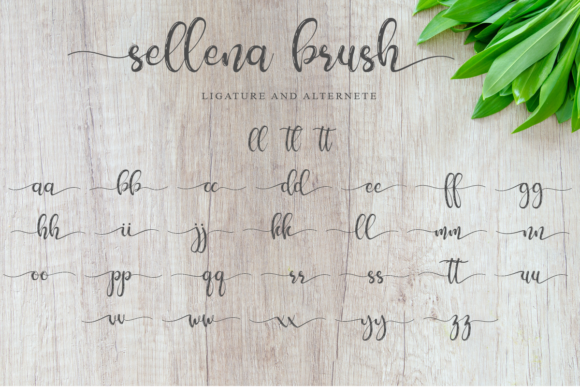 sellena brush
LIGATURE AND ALTERNETE
ll tl tt
aa bb cc dd ee ff gg
hh ii jj kk ll mm nn
oo pp qq rr ss tt uu
vv ww xx yy zz